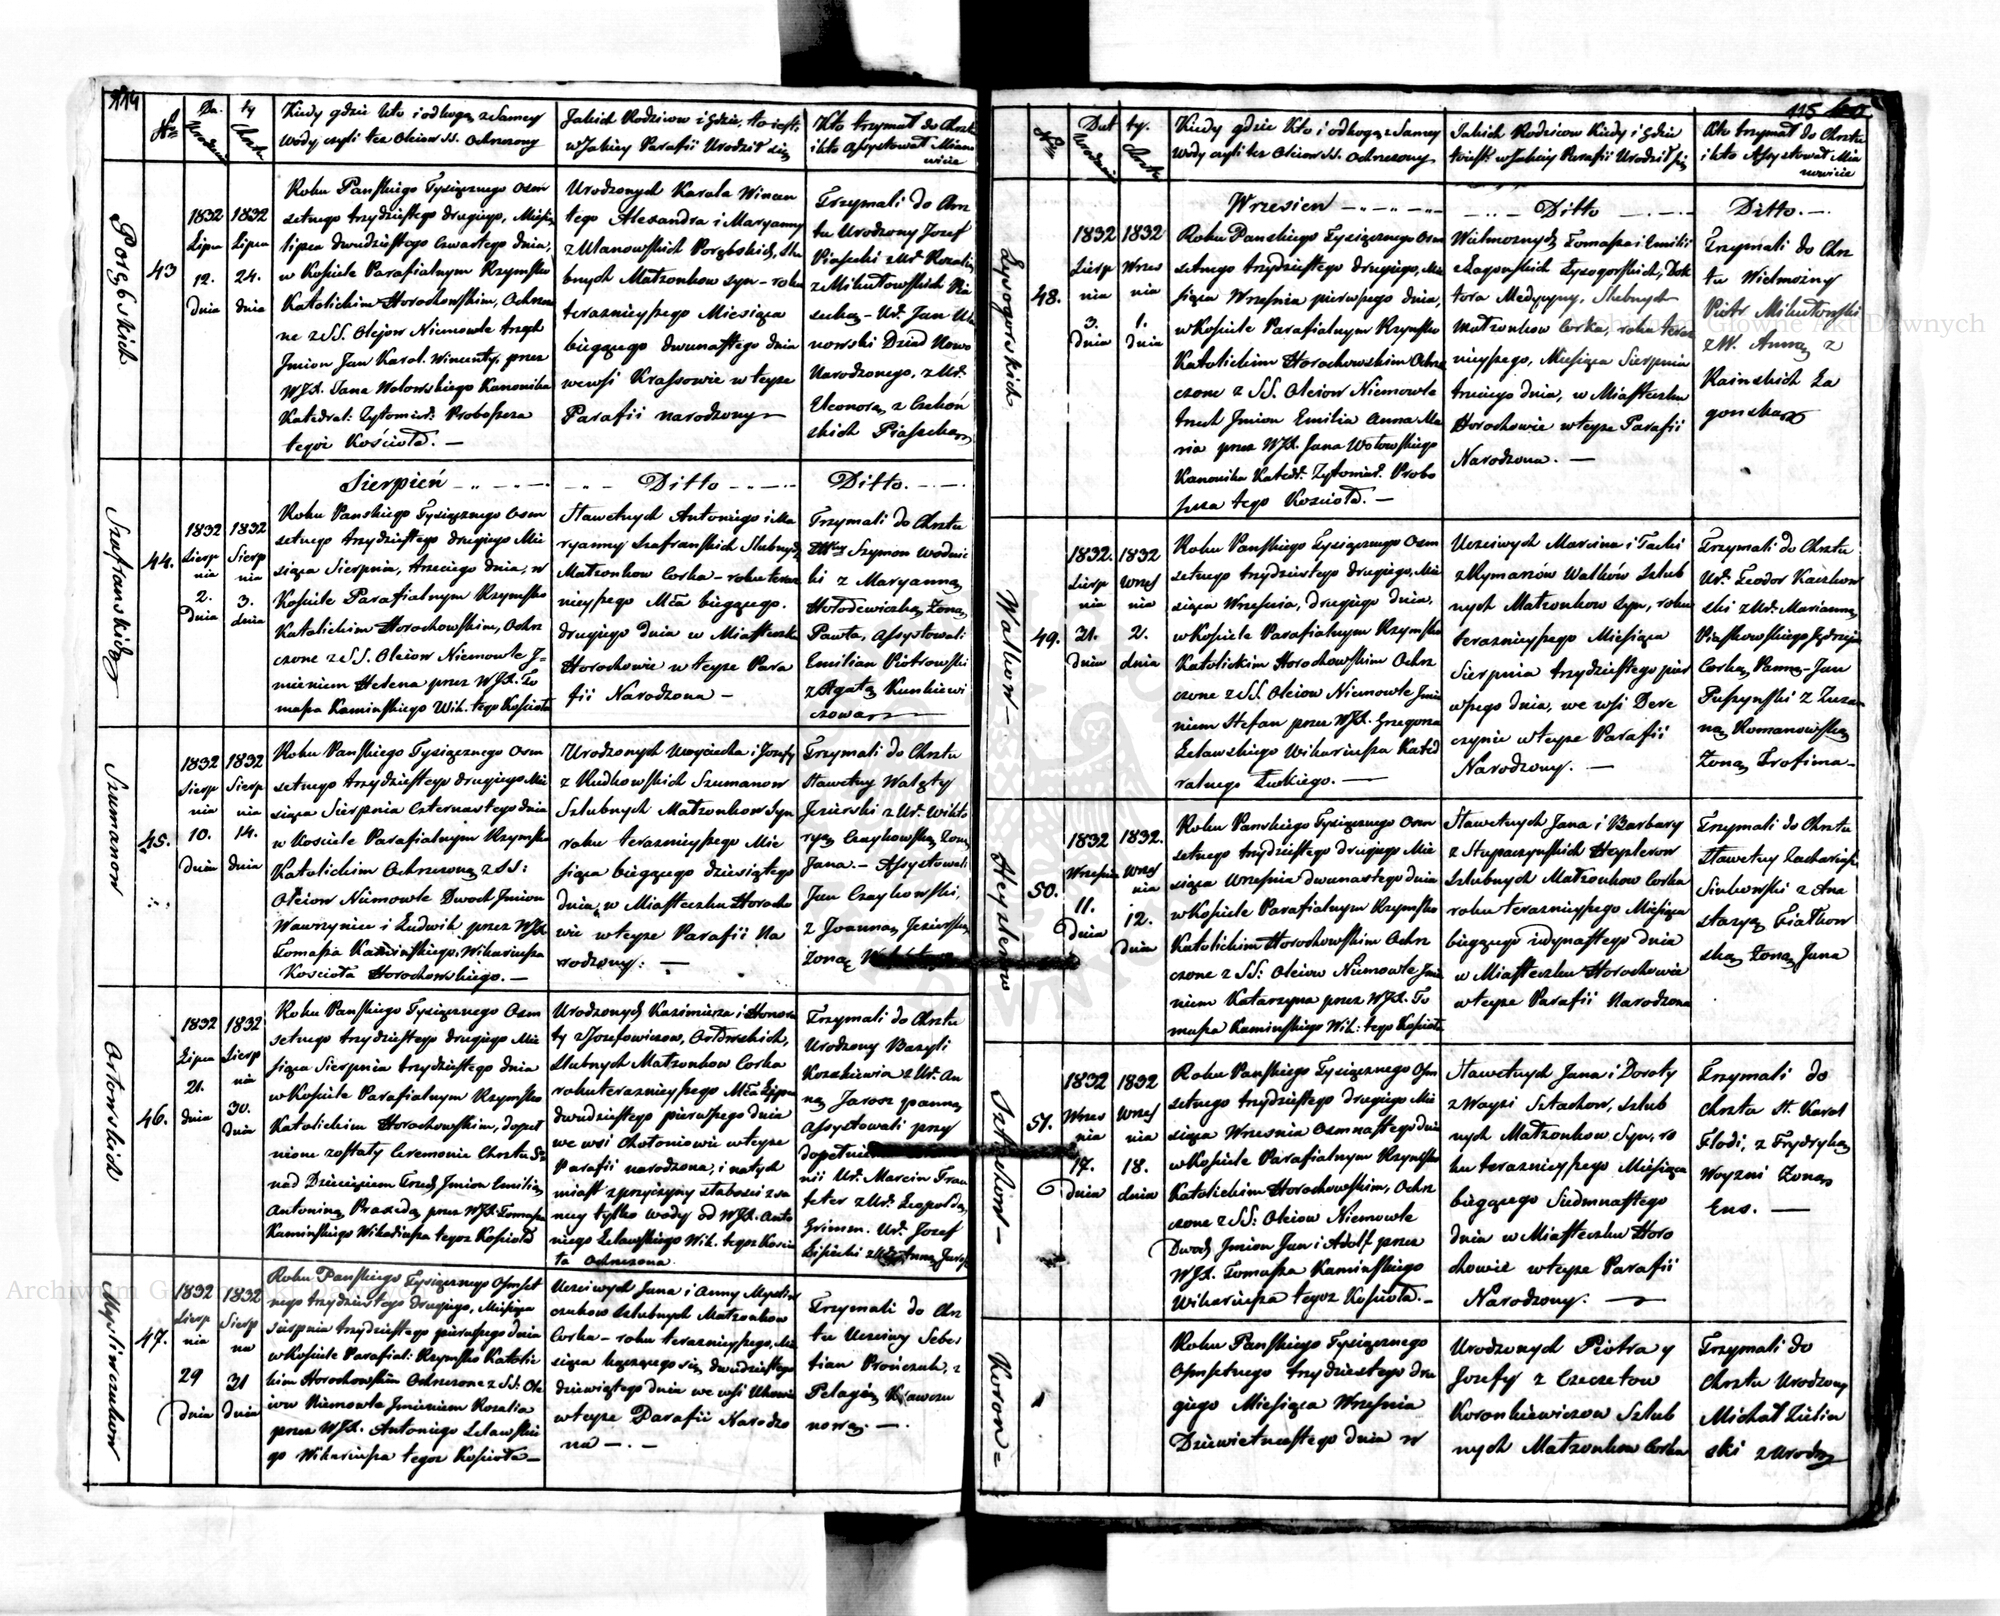 114
Nro
Da-
ty
Urodzenia
Chrztu
Kiedy gdzie kto i od kogo, z samey
wody, czyli też Oleiow SS. Ochrzcony
Jakich Rodzicow i gdzie, to iest:
w Jakiey Parafii Urodził się
Kto trzymał do Chrztu
i kto assystował Miano
wicie
Porębskich
43
1832
Lipca
12.
Dnia
1832
Lipca
24.
dnia
Roku Pańskiego Tysiącznego Osm
setnego trzydziestego drugiego, Miesiąca
lipca dwudziestego Czwartego dnia,
w Kościele Parafialnym Rzymsko
Katolickim Horochowskim, Ochrzco
ne z SS. Olejow Niemowle trzech
Jmion Jan Karol Wincenty, przez
WJX. Jana Wołowskiego Kanonika
Katedral: Zytomir: Proboszcza
tegoż Kościoła. —
Urodzonych Karola Wincen
tego Alexandra i Maryanny
z Ulanowskich Porębskich, Ślu
bnych Małżonkow syn - roku
teraznieyszego Miesiąca
bieżącego dwunastego dnia
we wsi Krassowie w teyże
Parafii narodzony —
Trzymali do Chrz
tu Urodzony Jozef
Piasecki z Ur. Rozalią
z Mikułowskich Pia
secką - Ur. Jan Ula
nowski Dziad Nowo
Narodzonego, z Ur.
Eleonorą z Czekoń
skich Piasecką
Szafrańskich
44.
1832
Sierp
nia
2.
Dnia
1832
Sierp
nia
3.
dnia
Sierpień
Roku Pańskiego Tysiącznego Osm
setnego trzydziestego drugiego Mie
siąca Sierpnia, trzeciego dnia, w
Kościele Parafialnym Rzymsko
Katolickim Horochowskim, Ochrz
czone z SS. Oleiow Niemowle J-
mieniem Helena przez WJX. To
masza Kaminskiego Wik. tego Kościoła
Ditto
Sławetnych Antoniego i Ma
ryanny Szafranskich Slubnych
Małżonkow Corka - roku teraz
nieyszego Mca bieżącego.
drugiego dnia w Miasteczku
Horochowie w teyże Para
fii Narodzona —
Ditto.
Trzymali do Chrztu
Szymon Wodnic
ki z Maryanną
Hołodewiczką Żoną
Pawła, Assystowali
Emilian Piotrowski
z Agatą Kunkiewi
czową
Szumanow
45.
1832
Sierp
nia
10.
Dnia
1832
Sierp
nia
14.
dnia
Roku Pańskiego Tysiącznego Osm
setnego trzydziestego drugiego Mie
siąca Sierpnia Czternastego dnia
w Kościele Parafialnym Rzymsko
Katolickim Ochrzczone z SS:
Oleiow Niemowle Dwoch Jmion
Wawrzyniec i Ludwik przez WJX
Tomasza Kaminskiego, Wikariusza
Kościoła Horochowskiego. —
Urodzonych Woyciecha i Jozefy
z Rudkowskich Szumanow
Szlubnych Małżonkow Syn
roku teraznieyszego Mie
siąca bieżącego dziesiątego
dnia, w Miasteczku Horocho
wie w teyże Parafii Na
rodzony: —
Trzymali do Chrztu
Sławetny Walęty
Jezierski z Ur. Wikto
ryą Czaykowską Żoną
Jana. - Assystowali
Jan Czaykowski,
z Joanną Jezierską
żoną
Ortowskich
46.
1832
Lipca
21.
dnia
1832
Sierp
nia
30.
Dnia
Roku Pańskiego Tysiącznego Osm
setnego trzydziestego drugiego Mie
siąca Sierpnia trzydziestego dnia
w Kościele Parafialnym Rzymsko
Katolickim Horochowskim, dopeł
nione zostały Ceremonie Chrztu S.
nad Dziecięciem Trzech Jmion Emilia,
Antonina, Praxeda, przez WJX. Tomasza
Kaminskiego Wikariusza tegoż Kościoła
Urodzonych Kazimierza i Honora
ty z Jozefowiczow, Ortowskich,
Slubnych Małżonkow Corka
roku teraznieyszego Mca Lipca
dwudziestego pierwszego dnia
we wsi Chołoniowie w teyże
Parafii narodzona, i natych
miast z przyczyny słabości z sa
mey tylko wody od WJX. Anto
niego Lelawskiego Wik. tegoż Kościo
ła Ochrzcona.
Trzymali do Chrztu
Urodzony Bazyli
Kozakiewicz z Ur. An
ną Jarosz panną
assystowali przy
dopełnie
nii Ur. Marcin Frau
teter z Ur. Leopoldą
Grimm. Ur. Jozef
Lipiński z Ur. Anną Jarosz
Mysliwczukow
47.
1832
Sierp
nia
29
dnia
1832
Sierp
nia
31
Dnia
Roku Pańskiego Tysiącznego Osmset
nego trzydziestego drugiego, Miesiąca
Sierpnia trzydziestego pierwszego dnia
w Kościele Parafial: Rzymsko Katolic
kim Horochowskim Ochrzczone z SS. Ole
iow Niemowle Jmieniem Rozalia
przez WJX. Antoniego Lelawskie
go Wikariusza tegoż Kościoła —
Uczciwych Jana i Anny Mysliw
czukow Szlubnych Małżonkow
Corka - roku teraznieyszego, Mie
siąca bieżącego się, dwudziestego
dziewiątego dnia we wsi
w teyże Parafii Narodzo
na —. —
Trzymali do Chrz
tu Uczciwy Sebes
tian Prończuk, z
Pelagią Krawczu
nową. —.
115
Nro
Dat
ty.
Urodzenia
Chrztu
Kiedy gdzie Kto i od kogo z Samey
Wody czyli też Oleiow SS. Ochrzcony
Jakich Rodzicow Kiedy i gdzie
to iest: w Jakiey Parafii Urodził się
Kto trzymał do Chrztu
i kto Assystował Mia
nowicie
Łysogorskich
48.
1832
Sierp
nia
3.
Dnia
1832
Wrześ
nia
1.
dnia
Wrzesien
Roku Panskiego Tysiącznego Osm
setnego trzydziestego drugiego, Mie
siąca Września pierwszego dnia,
w Kościele Parafialnym Rzymsko
Katolickim Horochowskim Ochrz
czone z SS. Oleiow Niemowle
trzech Jmion Emilia Anna Ma
ria przez WJX. Jana Wołowskiego
Kanonika Katedr. Zytomir. Probo
szcza tego Kościoła. —
Ditto
Wielmoznych Tomasza i Emilii
z Zagonskich Łysogorskich, Dok
tora Medycyny, Slubnych
Małżonkow Corka, roku teraz
nieyszego, Miesiąca Sierpnia
trzeciego dnia, w Miasteczku
Horochowie w teyże Parafii
Narodzona. —
Ditto.
Trzymali do Chrz
tu Wielmożny
Piotr Mikułowski
z W. Anną z
Rainskich Za
gonską
Walkow —
49.
1832.
Sierp
nia
31.
Dnia
1832
Wrześ
nia
2.
dnia
Roku Pańskiego Tysiącznego Osm
setnego trzydziestego drugiego, Mie
siąca Września, drugiego dnia,
w Kościele Parafialnym Rzymsko
Katolickim Horochowskim Ochrz
czone z SS. Oleiow Niemowle Jmie
niem Stefan przez WJX. Grzegorza
Lelawskiego Wikariusza Kated
ralnego Łuckiego. —
Uczciwych Marcina i Tacki
z Klymasiów Walków Szlub
nych Małżonkow Syn, roku
teraznieyszego Miesiąca
Sierpnia trzydziestego pier
wszego dnia, we wsi Bere
czynie w teyże Parafii
Narodzony. —
Trzymali do Chrztu
Ur. Teodor Kaczkow
ski z Ur. Marianną
Piaskowskiego Jędrzeja
Corką Panną - Jan
Puszynski z Zuzan
ną Romanowską
Żoną Trofima —
Heyzlerow
50.
1832
Września
11.
Dnia
1832.
Wrześ
nia
12.
Dnia
Roku Panskiego Tysiącznego Osm
setnego trzydziestego drugiego Mie
siąca Września dwunastego dnia
w Kościele Parafialnym Rzymsko
Katolickim Horochowskim Ochrz
czone z SS: Oleiow Niemowle Jmie
niem Katarzyna przez WJX. To
masza Kaminskiego Wik: tego Kościoła
Sławetnych Jana i Barbary
z Stupaczynskich Heyzlerow
Szlubnych Małżonkow Corka
roku teraznieyszego Miesiąca
bieżącego iedynastego dnia
w Miasteczku Horochowie
w teyże Parafii Narodzona
Trzymali do Chrztu
Sławetny Zachariasz
Sinkowski z Ana
stazyą Fiałkow
ską Żoną Jana
Sztachow —
51.
1832
Wrześ
nia
17.
dnia
1832
Wrześ
nia
18.
dnia
Roku Pańskiego Tysiącznego Osm
setnego trzydziestego drugiego Mie
siąca Wrzesnia Osmnastego dnia
w Kościele Parafialnym Rzymsko
Katolickim Horochowskim, Ochrz
czone z SS: Oleiow Niemowle
Dwoch Jmion Jan i Adolf przez
WJX. Tomasza Kaminskiego
Wikariusza tegoż Kościoła. —
Sławetnych Jana i Doroty
z Wayzi Sztachow, Szlub
nych Małżonkow Syn, ro
ku teraznieyszego Miesiąca
bieżącego Siedmnastego
dnia w Miasteczku Horo
chowie w teyże Parafii
Narodzony. —
Trzymali do
Chrztu St. Karol
Flodi, z Frydryką
Woyzni Żoną
Ens. —
Koron =
Roku Pańskiego Tysiącznego
Osmsetnego trzydziestego dru
giego Miesiąca Września
Dziewietnastego dnia w
Urodzonych Piotra y
Jozefy z Czeczotow
Koronkiewiczow Szlub
nych Małżonkow Corka
Trzymali do
Chrztu Urodzony
Michał Zielin
ski z Urodzo
Archiwum Główne Akt Dawnych
Archiwum Główne Akt Dawnych